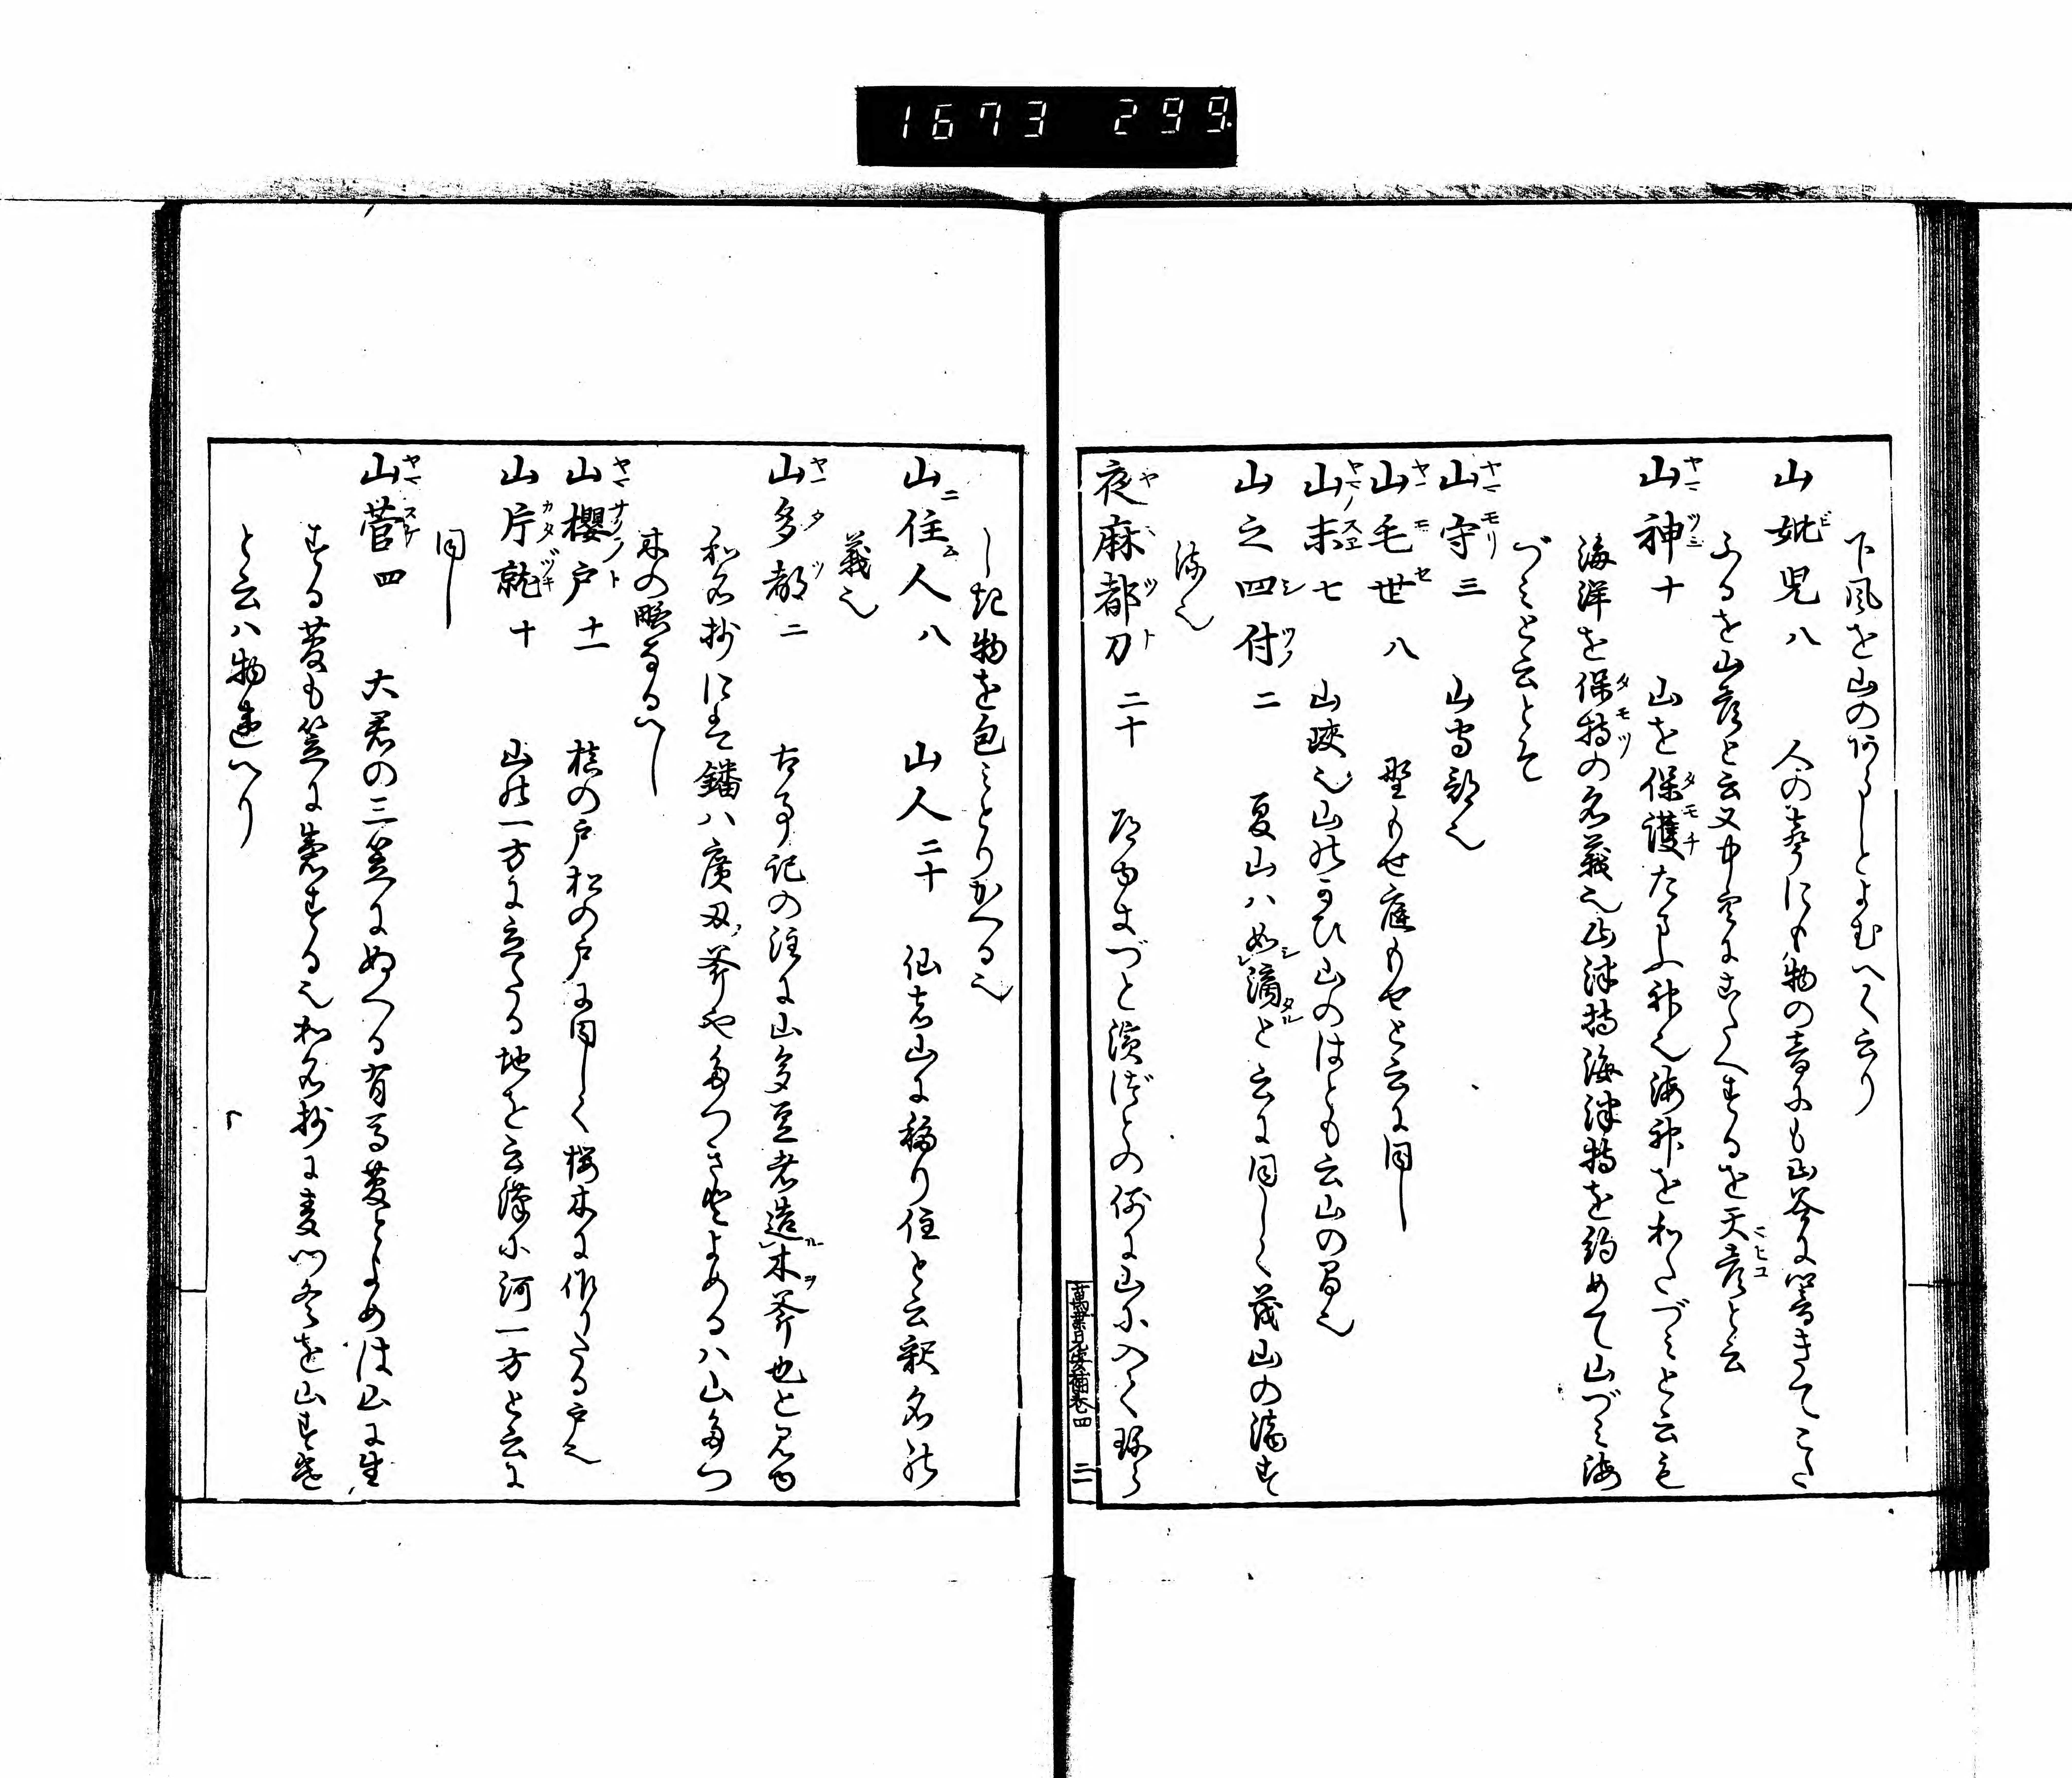 1673 299
下風を山のあらしとよむへく云り
山妣児八 人の声にも物の音にも山谷に響きてこた
ふるを山彦と云又中空にこたへするを天彦と云
山神十 山を保護たまふ神也海神をわたづミと云も
海洋を保持の名義也山津持海津持を約めて山づミ海
づミと云とそ
山守三 山守部也
山毛世八 野もせ庭もせと云に同し
山末七 山峡也山のかひ山のはとも云山の間也
山之四付二 夏山ハ如滴と云に同しく茂山の滴す
流也
夜麻都刀二十 やまづと濱づとの例に山に入て
萬葉目安補巻四 二一
し記物を包ミとりかへる也
山住人八 山人二十 仙者山に移り住と云釈名の
義也
山多都二 古事記の注に山多豆者造木斧也と見ゆ
和名抄にも鐇ハ廣刄斧や多つきとよめるハ山多つ
木の略なるへし
山櫻戸十一 槙の戸松の戸に同しく桜木に作りたる戸也
山片就十 山の一方に立たる地を云濱に河一方と云に
同し
山菅四 大君の三笠にぬへる有馬菅とよめは山に生
する菅も笠に製する也和名抄に麦門冬を山すけ
と云ハ物違へり